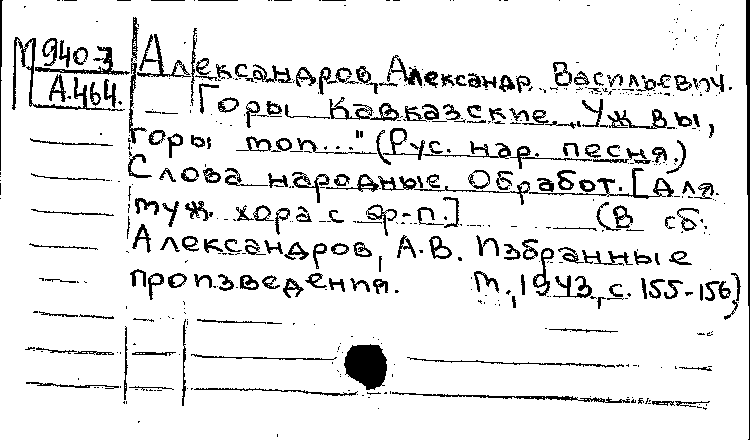 М 940-3
А.464.
Александров, Александр Васильевич.
Горы Кавказские. „Уж вы,
горы мои..." (Рус. нар. песня.)
Слова народные. Обработ. [для
муж. хора с фр-п.] (В сб.
Александров, А.В. Избранные
произведения. М., 1943, с. 155-156)